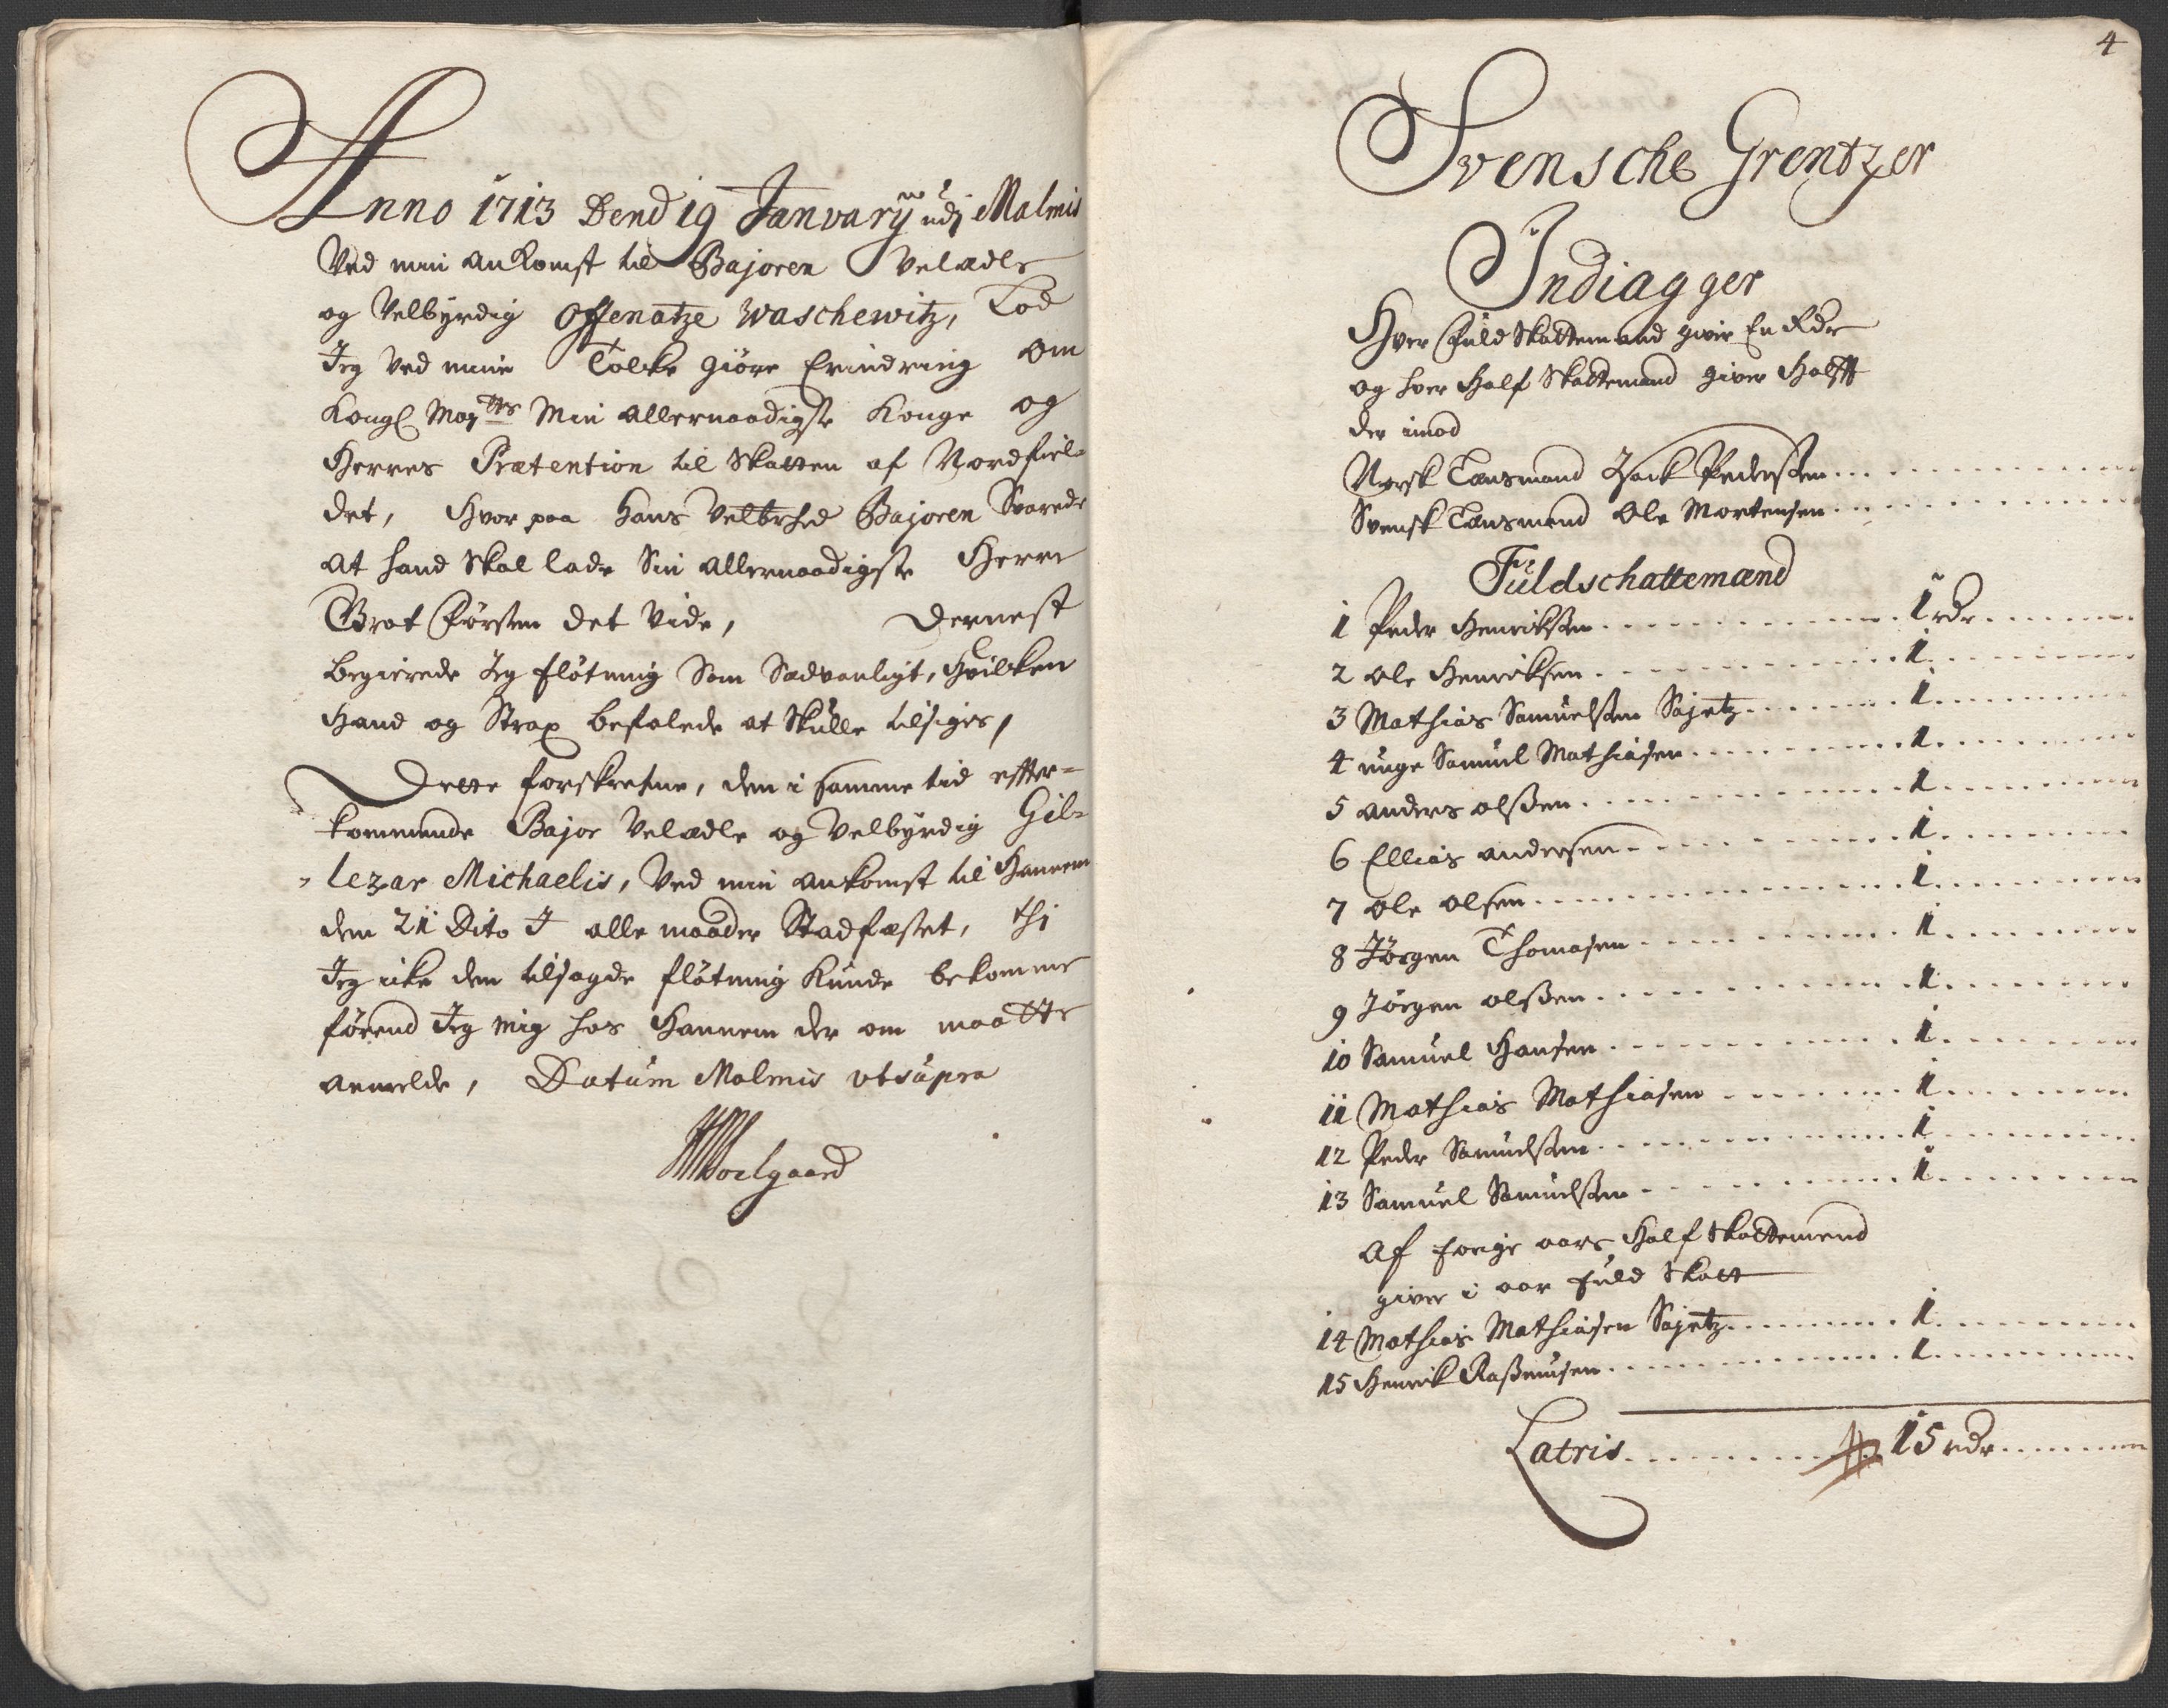 Anno 1713 Dend 19 Januarÿ udj Malmis
Ved min ankomst til Bajoren Velædle
og Velbÿrdig Offenatze Waschewitz, Lod
Jeg Ved min Tolcke giöre Erindring om
Kongl Maÿtts Min allernaadigste Konge og
Herres Prætention til Skatten af Nordfiel-
det, Hvor paa Hans Velbrhed Bajoren Svarede
at hand Skal lade Sin allernaadigste Herre
Grot Førsten det Vide, Dernest
begierede Jeg fløtning Som Sædvanligt, Hvilken
Hand og Strax befalede at Skulle tilsiges,
Dette forskrefne, den i samme tid effter-
kommende Bajor Velædle og Velbÿrdig Gil-
lezar Michaelis, Ved min ankomst til Hannem
den 21 Dito J alle maader Stadfæstet, thj
Jeg icke den tilsagde fløtning Kunde bekomme
førend Jeg mig hos Hannem der om maatte
anmelde, Datum Malmis vtsupra
4
Svensche Grentzer
Indiagger
Hver Fuld Skattemand giver En Rdr
og hver Half Skattemand giver Halfft
der imod
Norsk Lænsmand Isack Pedersen
Svensk Lænsmand Ole Mortensen
Fuldschattemænd
1 Peder Henriksen 1 rdr
2 Ole Henriksen 1
3 Mathias Samuelsen Sajetz 1
4 unge Samuel Mathiasen 1
5 Anders Olßen 1
6 Ellias Andersen 1
7 Ole Olsen 1
8 Jörgen Thomasen 1
9 Jörgen Olßen 1
10 Samuel Hansen 1
11 Mathias Mathiasen 1
12 Peder Samuelsen 1
13 Samuel Samuelsen 1
Af forige aars Half Skattemend
giver i aar fuld Skatt
14 Mathias Mathiasen Sajetz 1
15 Henrik Raßmusen 1
Latris 15 rdr